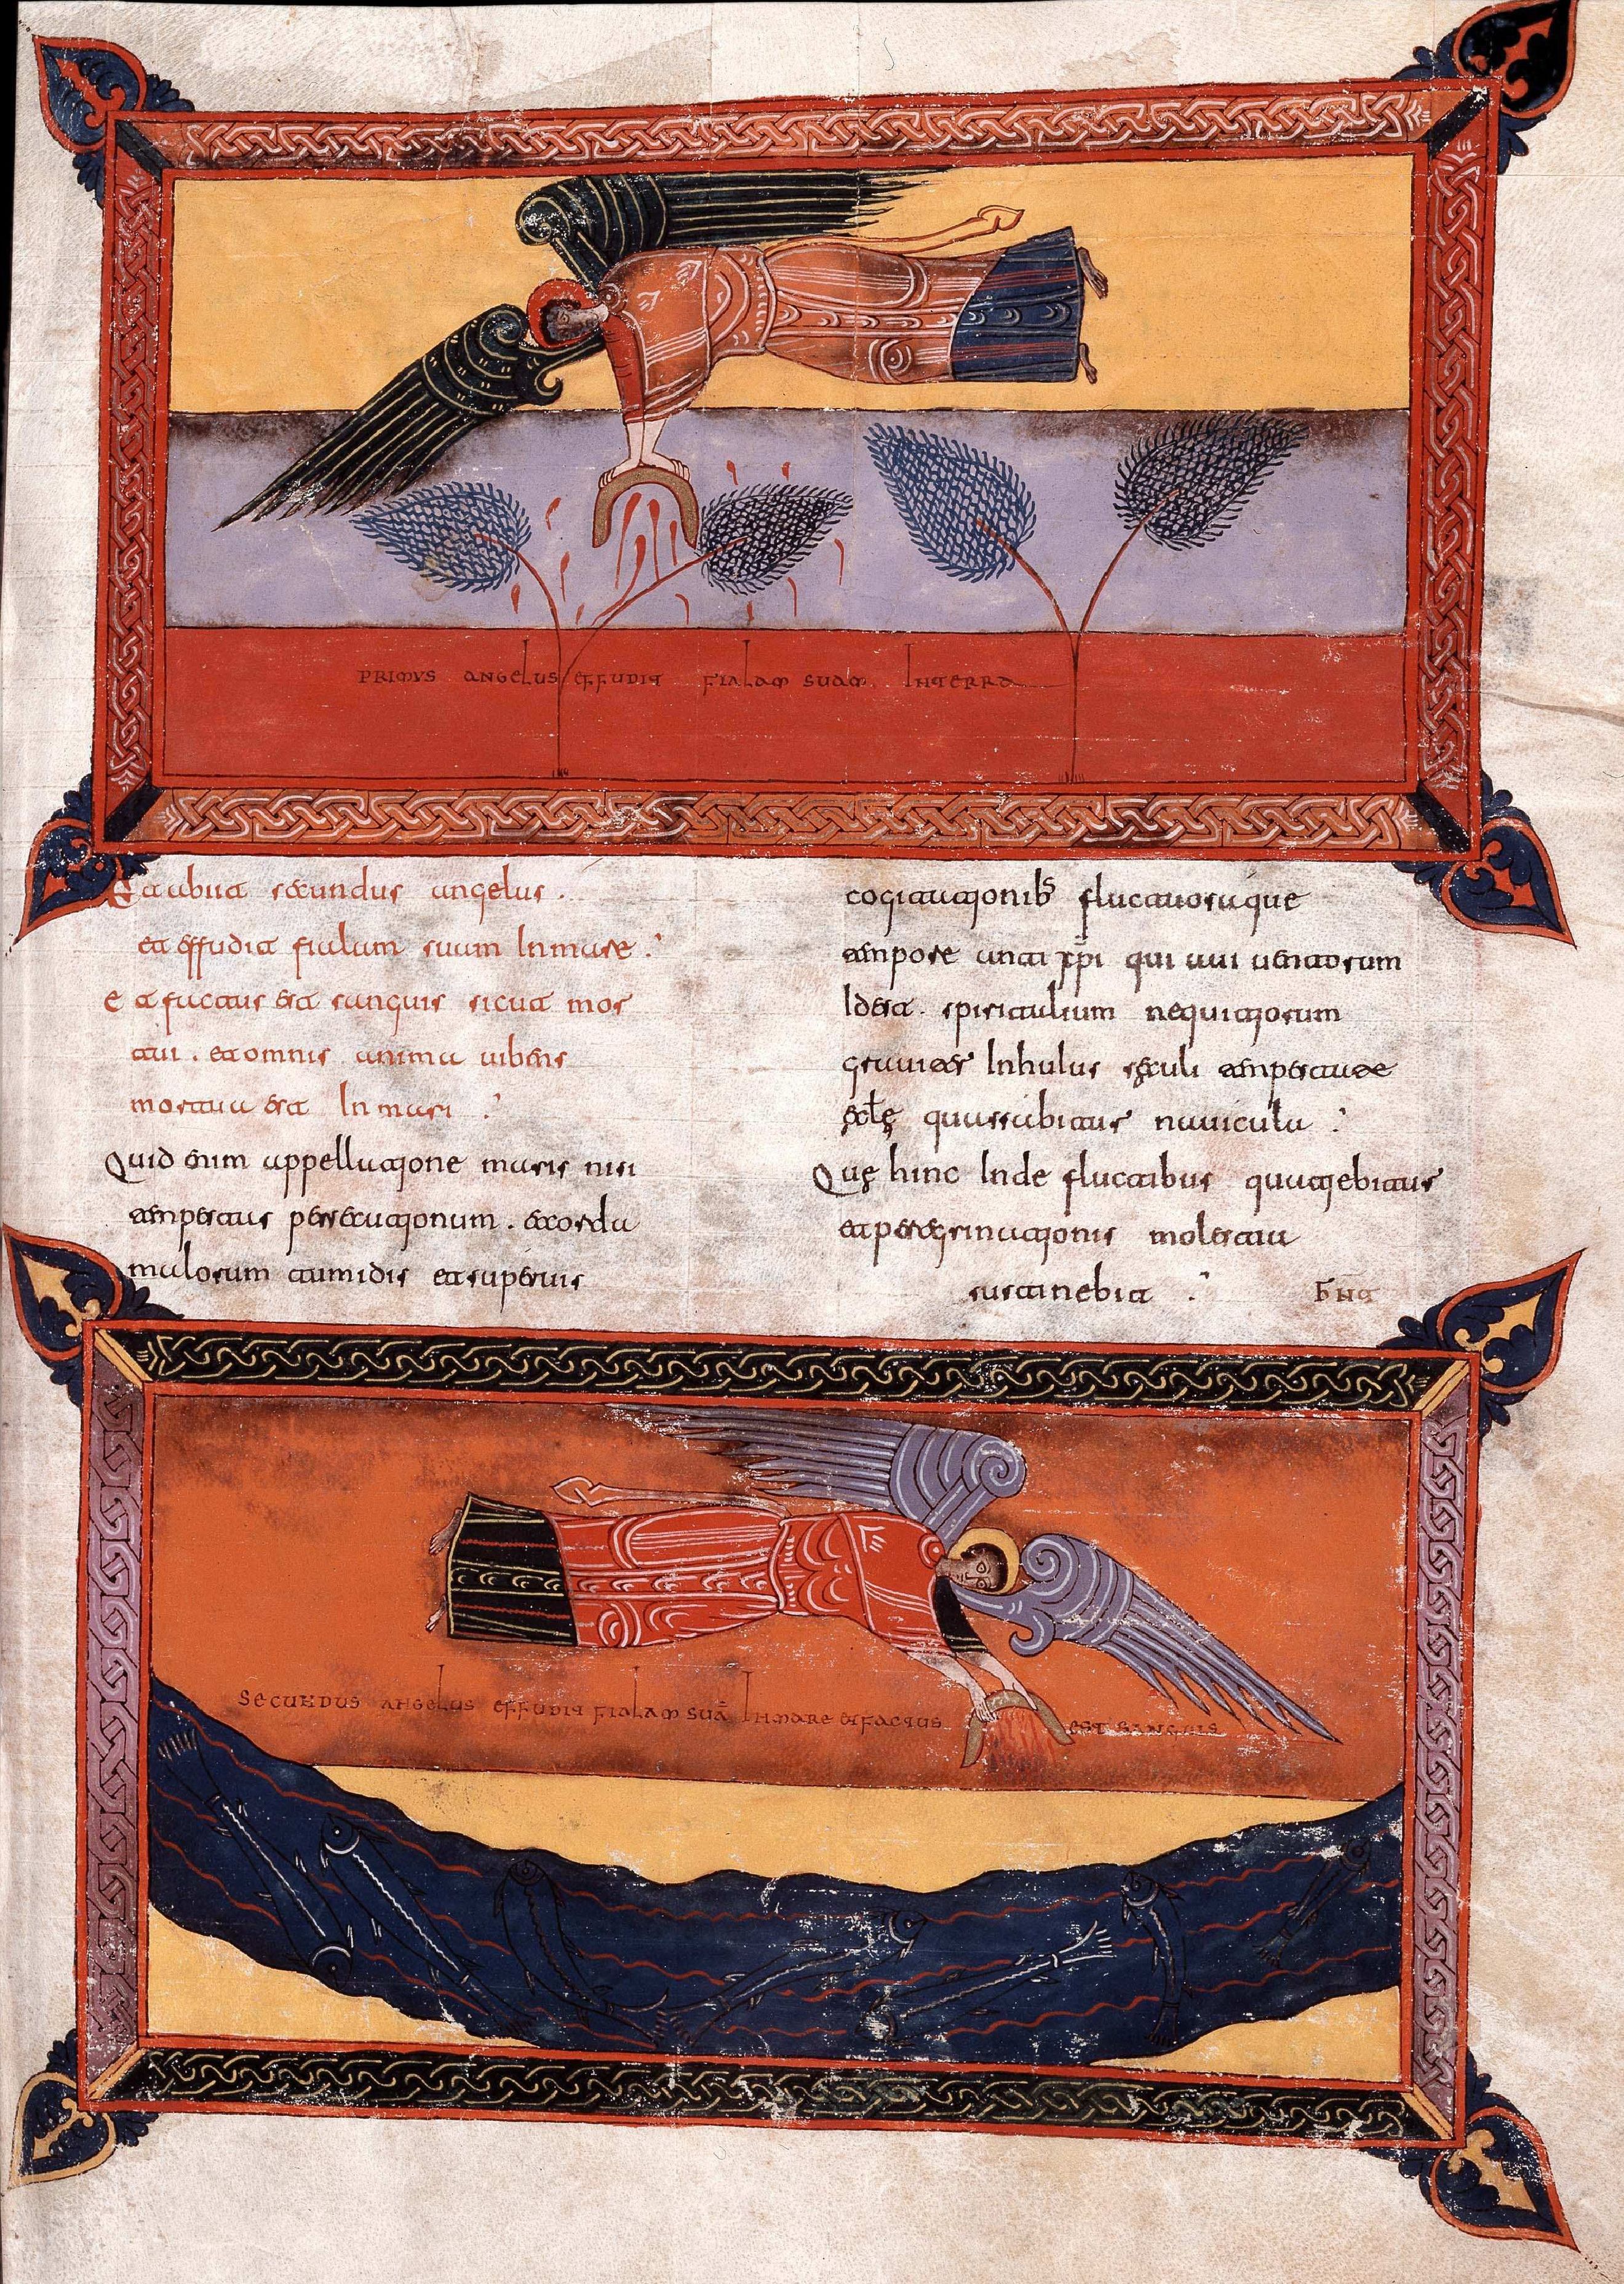 PRIMUS ANGELUS EFFUDIT FIALAM SUAM IN TERRA
Et abiit secundus angelus .
et effudit fialam suam In mare :
et factus est sanguis sicut mor
tui . et omnis anima uibens
mortua est In mari :
Quid enim appellatione maris nisi
tempestas persecutionum . exordia
malorum tumidis et superuis
cogitationibs fluctuosaque
tempore anti xpi qui a ui uentorum
Id est . spiritalium nequitiorum
grauiter In huius seculi tempestate
ecle quassabitur nauicula :
Que hinc Inde fluctibus quatiebitur
et peregrinationis molestia
sustinebit :
SECUNDUS ANGELUS EFFUDIT FIALAM SUĀ IN MARE ET FACTUS EST SANGUIS